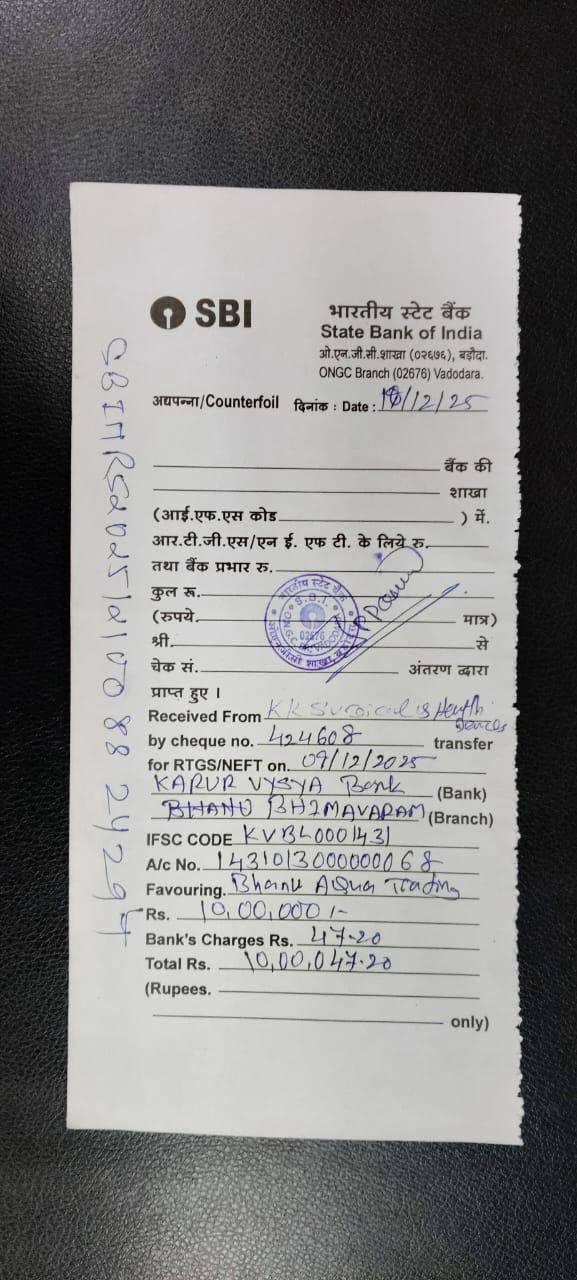 SBI
भारतीय स्टेट बैंक
State Bank of India
ओ.एन.जी.सी.शाखा (०२६७६), बड़ौदा.
ONGC Branch (02676) Vadodara.
अद्यपन्ना/Counterfoil दिनांक : Date : /12/25
बैंक की
शाखा
(आई.एफ.एस कोड ) में.
आर.टी.जी.एस/एन ई. एफ टी. के लिये रु.
तथा बैंक प्रभार रु.
कुल रू.
(रुपये. मात्र)
श्री. से
चेक सं. अंतरण द्वारा
प्राप्त हुए ।
भारतीय स्टेट बैंक
S.B.I.
02676
Received From KK Surgical & Health
by cheque no. 424608 transfer
for RTGS/NEFT on. 09/12/2025
KARUR VYSYA Bank (Bank)
BHIMAVARAM (Branch)
IFSC CODE KVBL0001431
A/c No. 1431013000000068
Favouring. Bhanu Aqua Trading
Rs. 10,00,000/-
Bank's Charges Rs. 47-20
Total Rs. 10,00,047.20
(Rupees.
only)